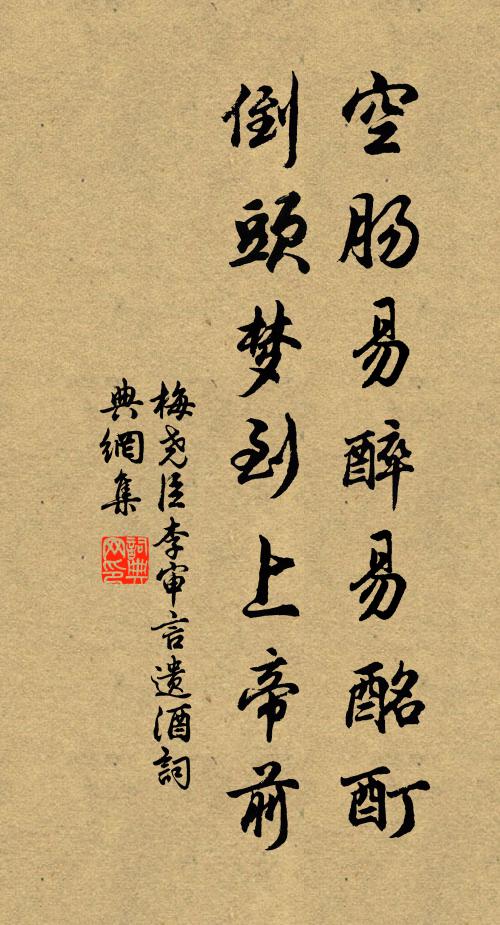 空肠易醉易酩酊
倒頭梦到上帝前
梅尧臣李审言遗酒詞
典網集
詞典
网印